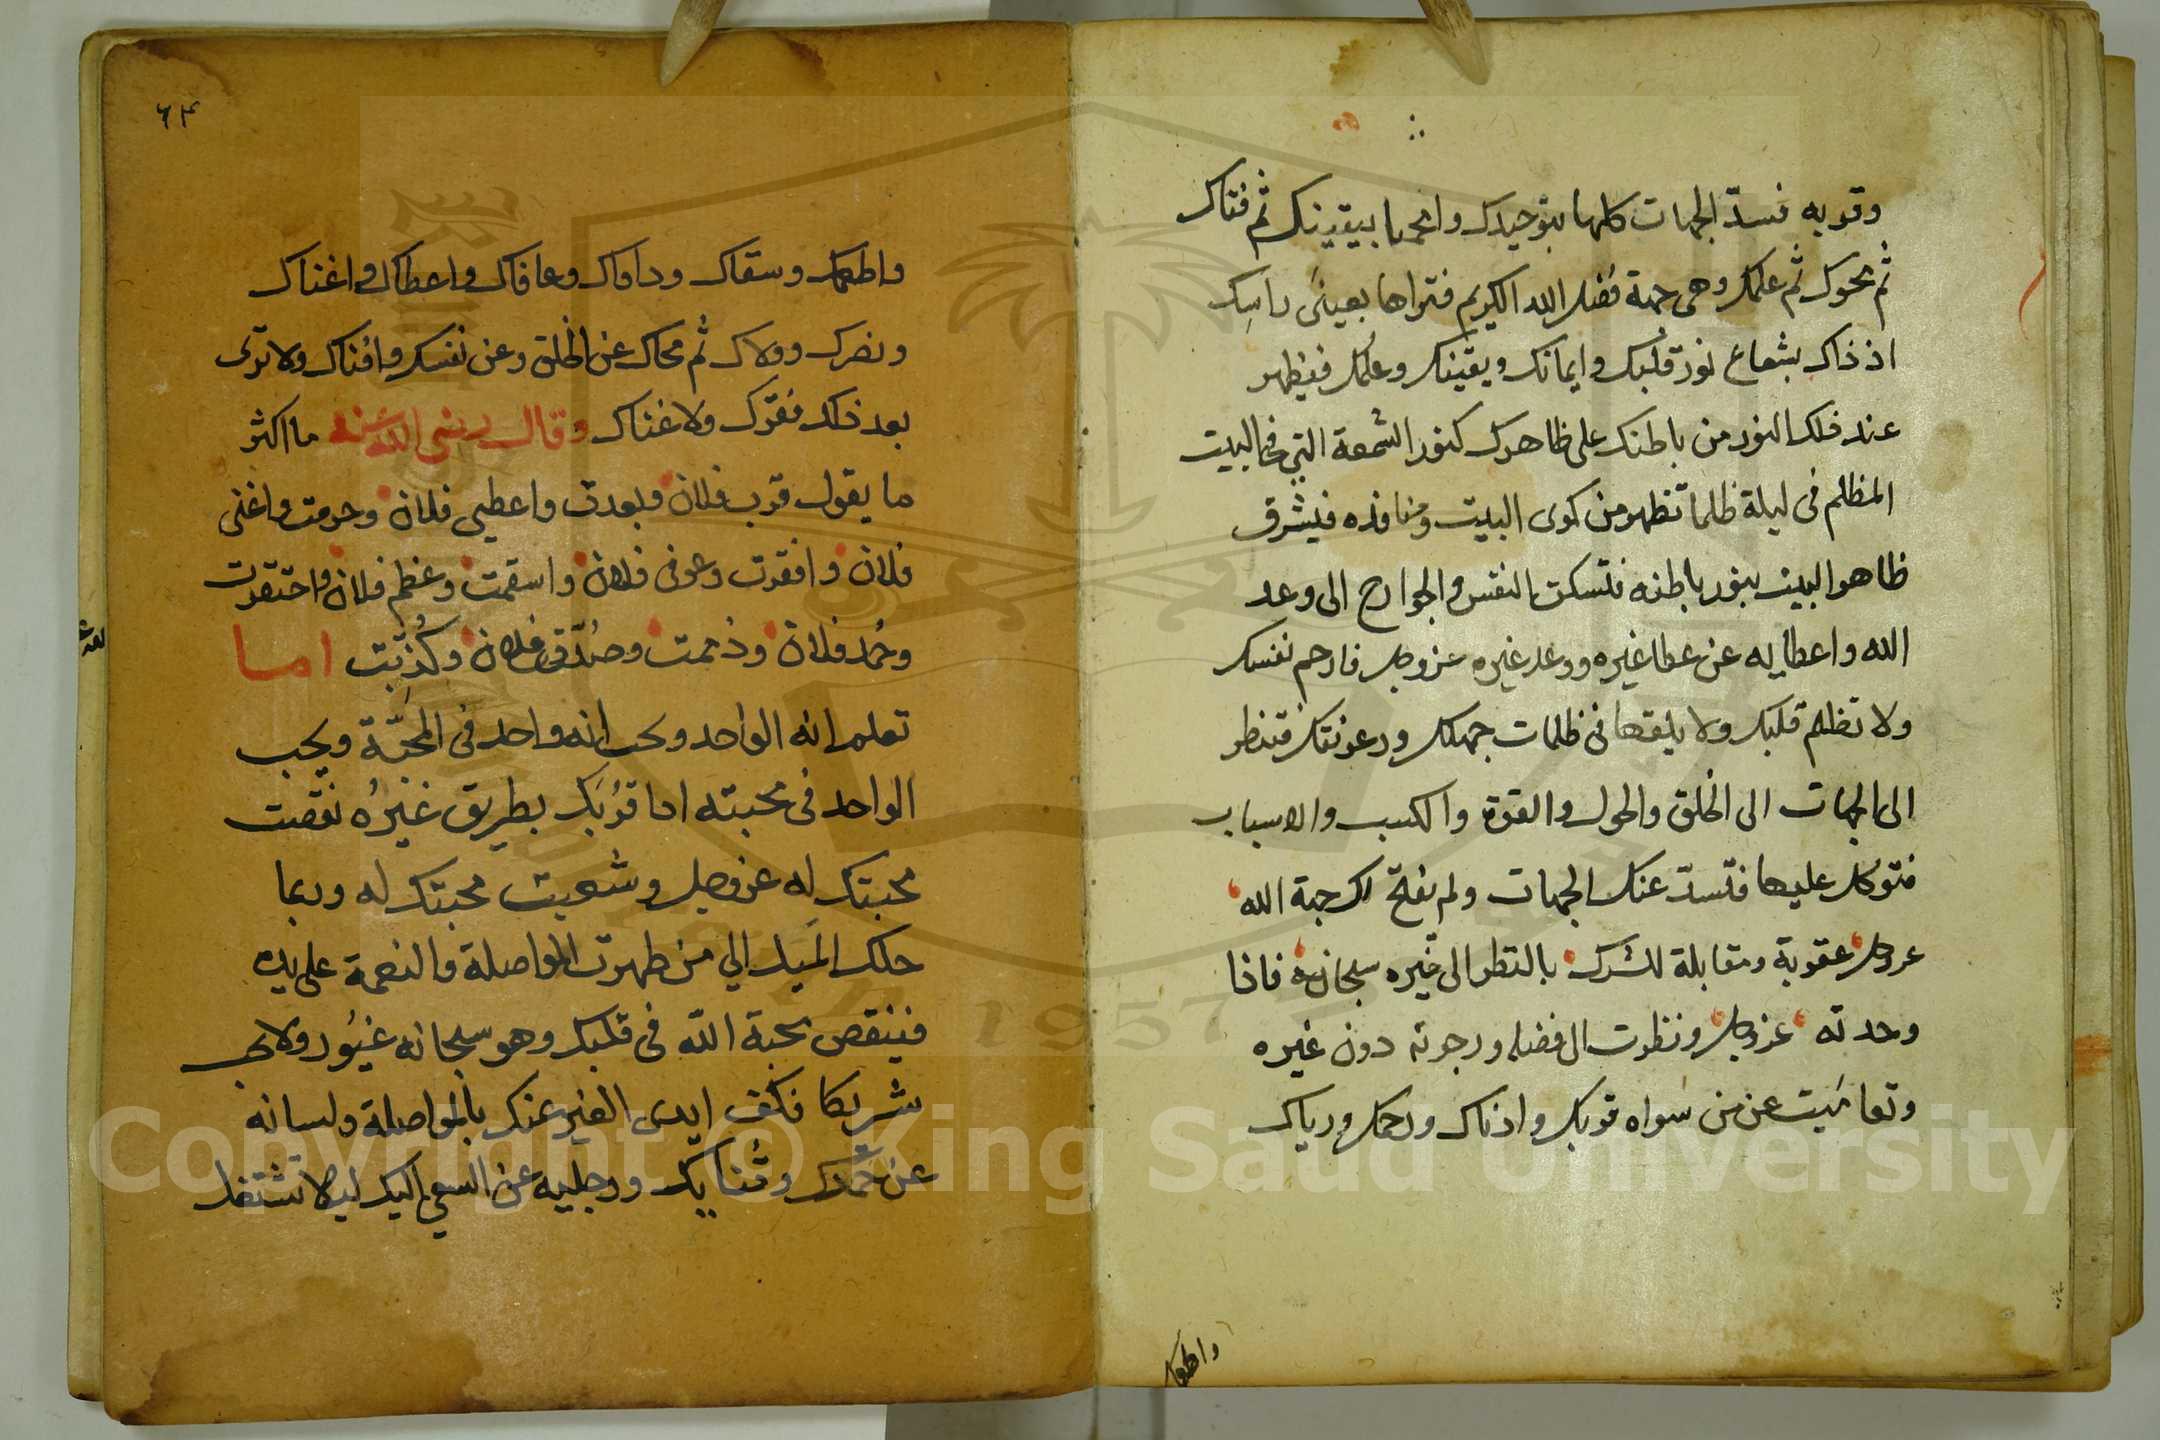 وقربه فسدّ الجهات كلها بتوحيدك وامحها بيقينك ثم فناك
ثم محوك ثم علمك وهي جهة فضل الله الكريم فتراها بعيني راسك
اذ ذاك بشعاع نور قلبك وايمانك ويقينك وعلمك فيظهر
عند ذلك النور من باطنك على ظاهرك كنور الشمعة التي في البيت
المظلم في ليلة ظلما تظهر من كوى البيت ومنافذه فيشرق
ظاهر البيت بنور باطنه فتسكن النفس والجوارح الى وعد
الله واعطايه عن عطا غيره ووعد غيره عز وجل فارحم نفسك
ولا تظلم قلبك ولا يلقها في ظلمات جهلك ورعونتك فتنظر
الى الجهات الى الخلق والحول والقوة والكسب والاسباب
فتوكل عليها فتسدّ عنك الجهات ولم يفتح لك جهة الله
عز وجل عقوبة ومقابلة للشرك بالنظر الى غيره سبحانه فاذا
وحدته عز وجل ونظرت الى فضله ورجوته دون غيره
وتعاميت عن من سواه قربك وادناك ورحمك ورباك
واطعمك
٦٤
واطعمك وسقاك وداواك وعافاك واعطاك واغناك
ونصرك وولاك ثم محاك عن الخلق وعن نفسك وافناك ولا ترى
بعد ذلك فقرك ولا غناك وقال رضي الله عنه ما اكثر
ما يقول قرب فلان وبعدت واعطي فلان وحرمت واغني
فلان وافقرت وعوفي فلان واسقمت وعظم فلان واحتقرت
وحُمد فلان وذممت وصُدّق فلان وكُذّبت اما
تعلم انه الواحد وحب انه واحد في المحبّة ويحب
الواحد في محبته اما قرّبك بطريق غيره نقصت
محبتك له عز وجل وشعبت محبتك له وربما
حلك الميل الي من ظهرت المواصلة والنعمة على يده
فينقص محبة الله في قلبك وهو سبحانه غيور ولا يحب
شريكا فكف ايدى الغير عنك بالمواصلة ولسانه
عن حمدك وثنايك ورجليه عن السعي اليك ليلا تشتغل